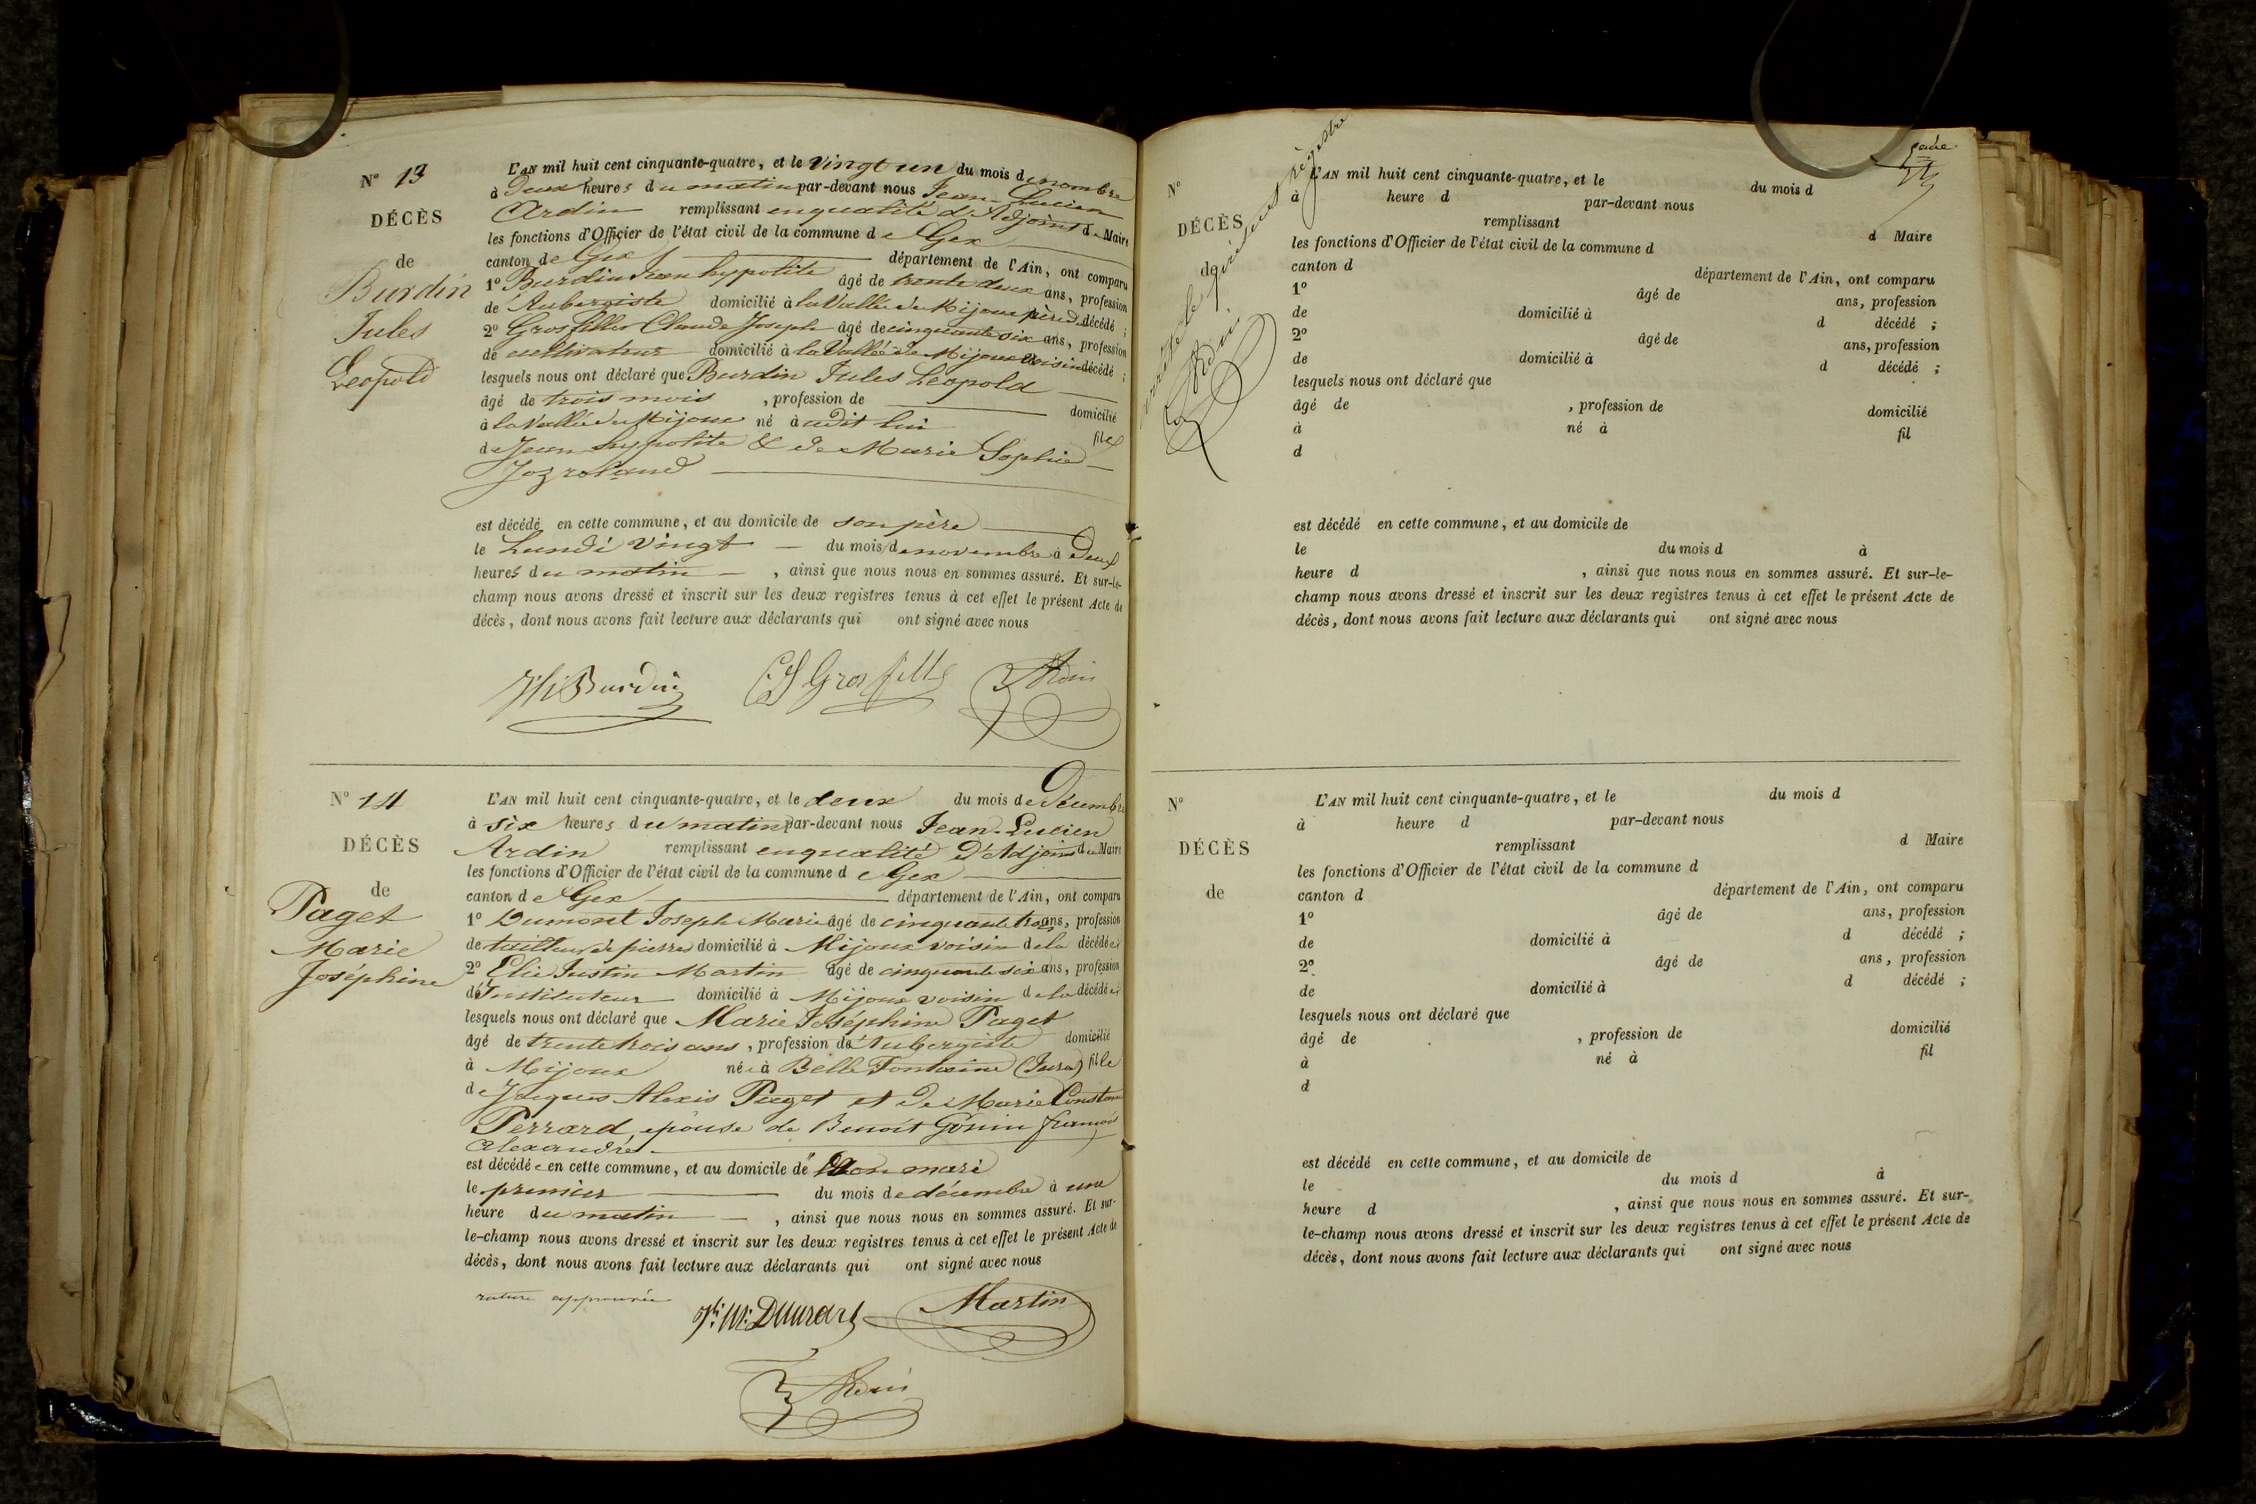 N° 13
DÉCÈS
de
Burdin
Jules
Leopold
L'AN mil huit cent cinquante-quatre, et le vingt un du mois de novembre
à Deux heures du matin par-devant nous Jean-Lucien
Ardin remplissant en qualité d'Adjoint du Maire
les fonctions d'Officier de l'état civil de la commune de Gex
canton de Gex département de l'Ain, ont comparu
1° Burdin Jean hypolite âgé de trente deux ans, profession
de Aubergiste domicilié à la Vallée de Mijoux père du décédé ;
2° Grosfiller Claude Joseph âgé de cinquante six ans, profession
de cultivateur domicilié à la Vallée de Mijoux voisin décédé ;
lesquels nous ont déclaré que Burdin Jules Leopold
âgé de trois mois , profession de domicilié
à la Vallée de Mijoux né à audit lieu fils
de Jean hypolite & de Marie Sophie
est décédé en cette commune, et au domicile de son père
le Lundi vingt du mois de novembre à Deux
heures du matin , ainsi que nous nous en sommes assuré. Et sur-le-
champ nous avons dressé et inscrit sur les deux registres tenus à cet effet le présent Acte de
décès, dont nous avons fait lecture aux déclarants qui ont signé avec nous
JH Burdin Ardin
N° 14
DÉCÈS
de
Paget
Marie
Joséphine
L'AN mil huit cent cinquante-quatre, et le deux du mois de Décembre
à six heures du matin par-devant nous Jean-Lucien
Ardin remplissant en qualité d'Adjoint du Maire
les fonctions d'Officier de l'état civil de la commune de Gex
canton de Gex département de l'Ain, ont comparu
1° Dumont Joseph Marie âgé de cinquante trois ans, profession
de tailleur de pierres domicilié à Mijoux voisin de la décédée
2° Elie Justin Martin âgé de cinquante six ans, profession
d'Instituteur domicilié à Mijoux voisin de la décédée
lesquels nous ont déclaré que Marie Joséphine Paget
âgé de trente trois ans , profession de Aubergiste domicilié
à Mijoux née à Belle Fontaine (Jura) fille
de Jacques Alexis Paget et de Marie Constance
Perrard, épouse de Benoit Gonin françois
alexandre
est décédée en cette commune, et au domicile de son mari
le premier du mois de décembre à une
heure du matin , ainsi que nous nous en sommes assuré. Et sur-
le-champ nous avons dressé et inscrit sur les deux registres tenus à cet effet le présent Acte de
décès, dont nous avons fait lecture aux déclarants qui ont signé avec nous
rature approuvée
Martin
Ardin
arrêté le présent régistre
Ardin
N°
DÉCÈS
de
L'AN mil huit cent cinquante-quatre, et le du mois d
à heure d par-devant nous
remplissant d Maire
les fonctions d'Officier de l'état civil de la commune d
canton d département de l'Ain, ont comparu
1° âgé de ans, profession
de domicilié à d décédé ;
2° âgé de ans, profession
de domicilié à d décédé ;
lesquels nous ont déclaré que
âgé de , profession de domicilié
à né à fil
d
est décédé en cette commune, et au domicile de
le du mois d à
heure d , ainsi que nous nous en sommes assuré. Et sur-le-
champ nous avons dressé et inscrit sur les deux registres tenus à cet effet le présent Acte de
décès, dont nous avons fait lecture aux déclarants qui ont signé avec nous
N°
DÉCÈS
de
L'AN mil huit cent cinquante-quatre, et le du mois d
à heure d par-devant nous
remplissant d Maire
les fonctions d'Officier de l'état civil de la commune d
canton d département de l'Ain, ont comparu
1° âgé de ans, profession
de domicilié à d décédé ;
2° âgé de ans, profession
de domicilié à d décédé ;
lesquels nous ont déclaré que
âgé de , profession de domicilié
à né à fil
d
est décédé en cette commune, et au domicile de
le du mois d à
heure d , ainsi que nous nous en sommes assuré. Et sur-
le-champ nous avons dressé et inscrit sur les deux registres tenus à cet effet le présent Acte de
décès, dont nous avons fait lecture aux déclarants qui ont signé avec nous